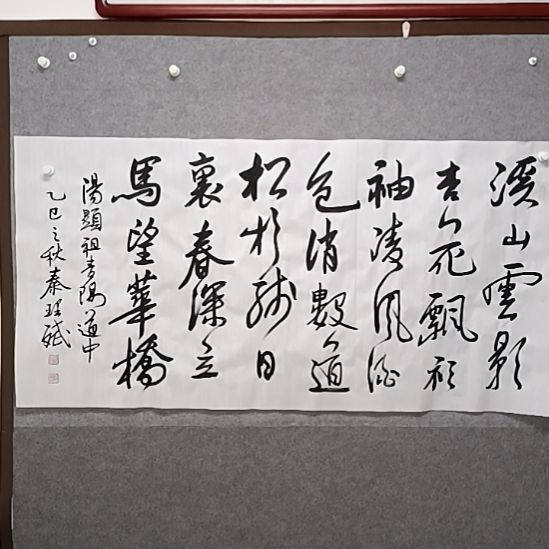 溪山雲影
杏花飄衫
袖凌風酒
色消數道
松杉殘日
裏春深立
馬望華橋
湯顯祖青陽道中
乙巳之秋秦